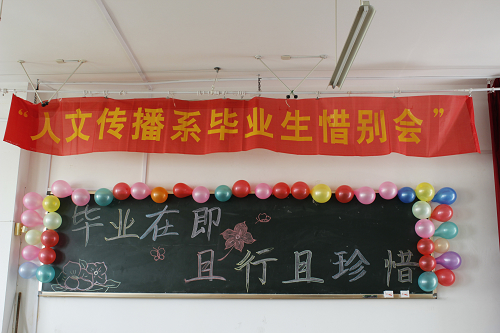 “人文传播系毕业生惜别会”
毕业在即
且行且珍惜